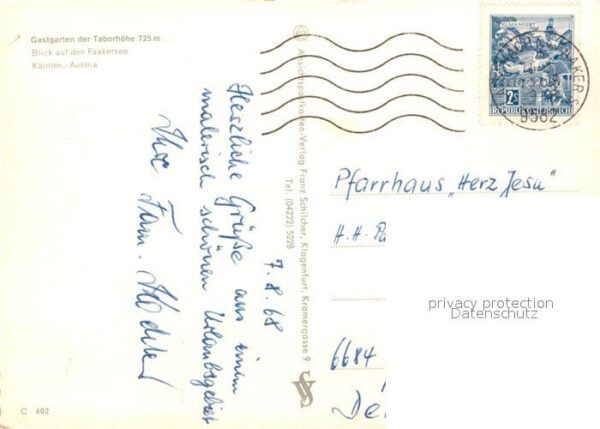 Gastgarten der Taborhöhe 725 m
Blick auf den Faakersee
Kärnten, Austria
7.8.68
Herzliche Grüße aus einem
malerisch schönen Urlaubsgebiet
Ihre Fam.
© Ansichtspostkarten-Verlag Franz Schilcher, Klagenfurt, Kramergasse 9
Tel. (04222) 5228
KLAGENFURT
2S
REPUBLIK ÖSTERREICH
Pfarrhaus „Herz Jesu"
H.H.
6684
privacy protection
Datenschutz
C 402